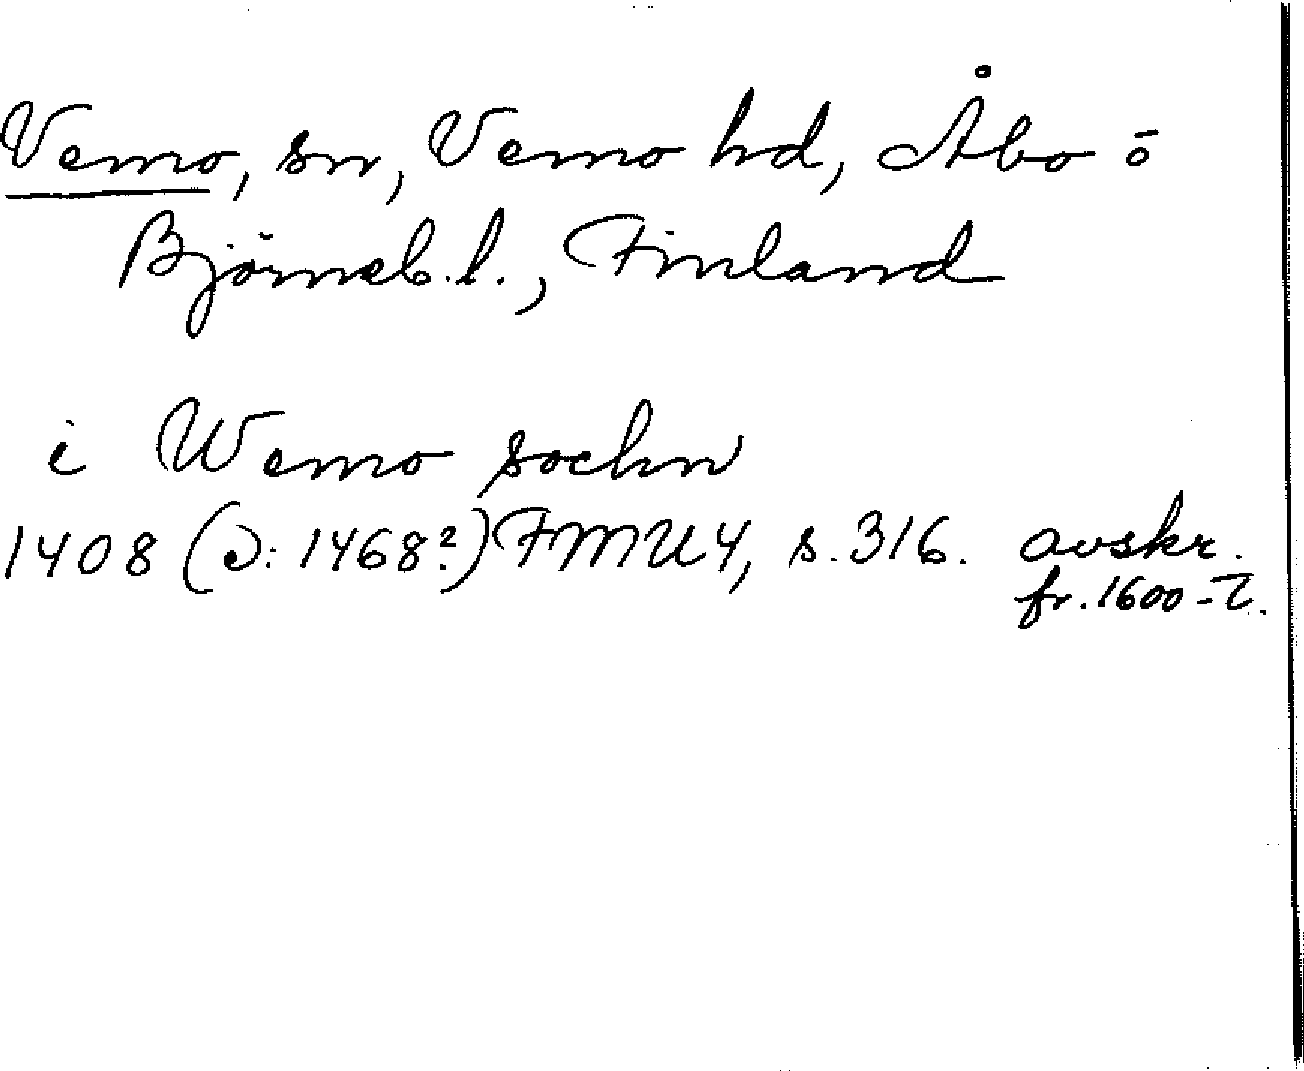 Vemo, sn, Vemo hd, Åbo ö
Björneb. l., Finland
i Wemo sochn
1408 (ɔ: 1468?) FMU 4, s. 316. avskr.
fr. 1600-t.